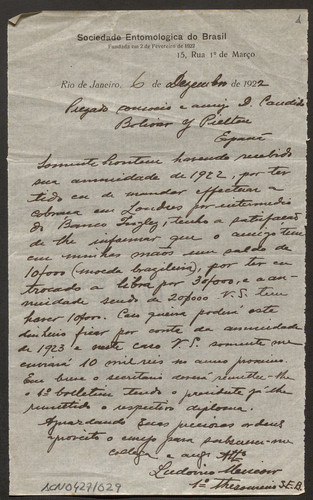 Sociedade Entomologica do Brasil
Fundada em 2 de Fevereiro de 1922
15, Rua 1º de Março
Rio de Janeiro, 6 de Dezembro de 1922
Prezado consocio e amigo D. Candido
Bolivar y Pieltan
Somente hontem havendo recebido
sua annuidade de 1922, por ter
tido eu de mandar effectuar a
cobrança em Londres por intermedio
do Banco Inglez, tenho a satisfação
de lhe informar que o amigo tem
em minhas mãos um saldo de
10$000 (moeda brazileira), por ter eu
trocado a libra por 30$000, e a an-
nuidade sendo de 20$000 V.S. tem
haver 10$000. Caso queira poderá este
dinheiro ficar por conta da annuidade
de 1923 e neste caso V.S. somente me
enviará 10 mil reis no anno proximo.
Em breve o secretario deverá remetter-lhe
o 1º bolletim tendo o presidente já lhe
remettido o respectivo diploma.
Aguardando suas preciosas ordens
aproveito o ensejo para subscrever-me
collega e amigo
1º Thesoureiro S.E.B.
ACN0429/029